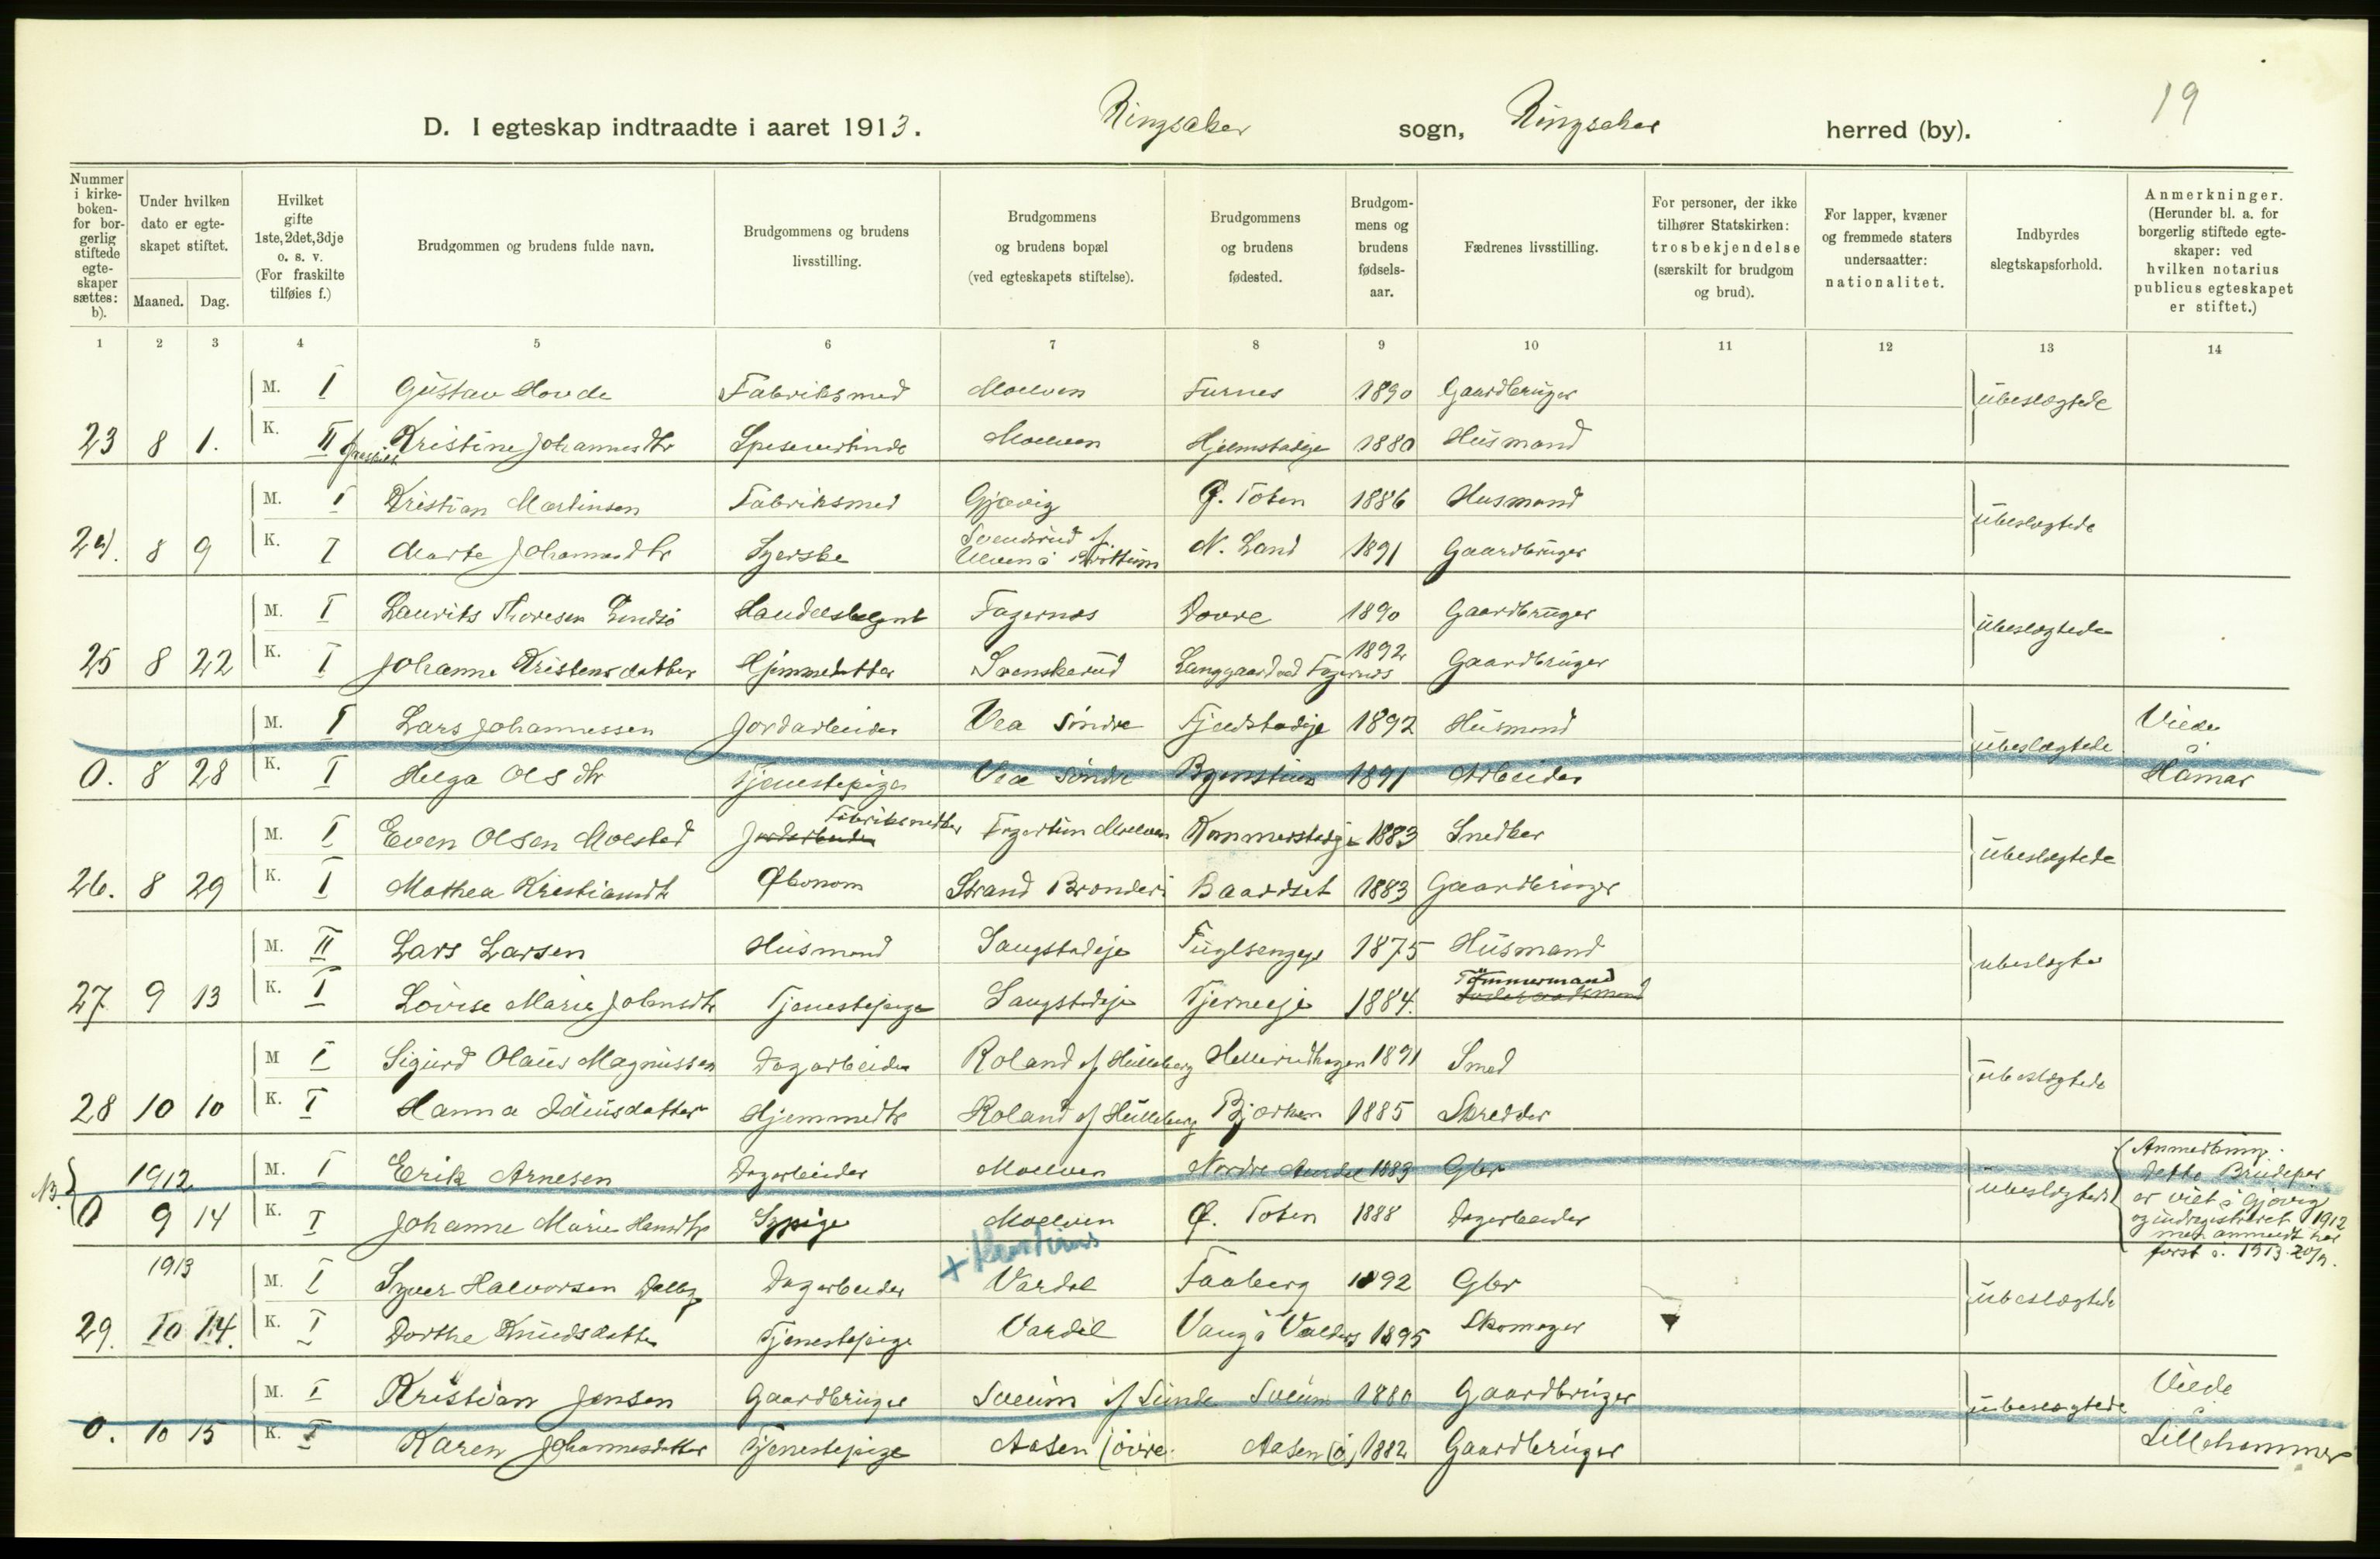 19
D. I egteskap indtraadte i aaret 1913. Ringsaker sogn, Ringsaker herred (by).
Nummer i kirkeboken- for borgerlig stiftede egteskaper sættes: b).
Under hvilken dato er egteskapet stiftet.
Maaned. Dag.
Hvilket gifte 1ste, 2det, 3dje o. s. v. (For fraskilte tilføies f.)
Brudgommen og brudens fulde navn.
Brudgommens og brudens livsstilling.
Brudgommens og brudens bopæl (ved egteskapets stiftelse).
Brudgommens og brudens fødested.
Brudgommens og brudens fødselsaar.
Fædrenes livsstilling.
For personer, der ikke tilhører Statskirken: trosbekjendelse (særskilt for brudgom og brud).
For lapper, kvæner og fremmede staters undersaatter: nationalitet.
Indbyrdes slegtskapsforhold.
Anmerkninger. (Herunder bl. a. for borgerlig stiftede egteskaper: ved hvilken notarius publicus egteskapet er stiftet.)
1 2 3 4 5 6 7 8 9 10 11 12 13 14
M. I Gustav Hovde Fabriksmed Moelven Furnes 1890 Gaardbruger ubeslegtede
23 8 1. K. II fraskilt Kristine Johannesdtr Moelven 1880 Husmand
M. I Kristian Martinsen Fabriksmed Gjøvig Ø. Toten 1886 Husmand ubeslegtede
24. 8 9 K. I Marte Johannesdtr Syerske N. Land 1891 Gaardbruger
M. I Laurits Thoresen Fagernes Dovre 1890 Gaardbruger ubeslegtede
25 8 22 K. I Johanne Kristensdatter Hjemmedatter Svenskerud Langgaard ved Fagernes 1892 Gaardbruger
M. I Lars Johannessen Jordarbeider Vea søndre Fjeldstadeje 1892 Husmand ubeslegtede Viede i Hamar
0. 8 28 K. I Helga Olsdtr Tjenestepige Vea søndre 1891 Arbeider
M. I Even Olsen Moestad Jordarbeider Moelven 1883 Snedker ubeslegtede
26. 8 29 K. I Mathea Kristiansdtr Økonom Strand Baardset 1883 Gaardbruger
M. II Lars Larsen Husmand Saugstadeje Fuglsengeje 1875 Husmand ubeslegtede
27 9 13 K. I Lovise Marie Johnsdtr Tjenestepige Saugstadeje Tjerneeje 1884. Tømmermand
M I Sigurd Olaus Magnussen Dagarbeider Roland af Hulleberg 1891 Smed ubeslegtede
28 10 10 K. I Hanna Idéusdatter Hjemmedtr Roland af Hulleberg Bjørken 1885 Skredder
1912 M. I Erik Arnesen Dagarbeider Moelven Nordre Aurdal 1883 Gbr ubeslegtede
Anmerkning. dette Brudepar er viet i Gjøvig og indregistreret 1912 men anmeldt her først i 1913
0 9 14 K. I Johanne Marie Hansdtr Sypige Moelven Ø. Toten 1888 Dagarbeider
1913 M. I Syver Halvorsen Dalby Dagarbeider Vardal Faaberg 1892 Gbr ubeslegtede
29. 10 14. K. I Dorthe Knudsdatter Tjenestepige Vardal Vang i Valders 1895 Skomager
M. I Kristian Jensen Gaardbruger Sveum af Sunde Sveum 1880 Gaardbruger ubeslegtede Viede i Lillehammer
0. 10 15 K. I Karen Johannesdatter Tjenestepige Aasen (øvre) Aasen (ø) 1882 Gaardbruger